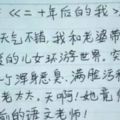 《二十年后的我》
天气不错,我和老婆带
的儿女环游世界,突
个浑身恶臭,满脸污
老太太,天啊!她竟
愉的语文老师!